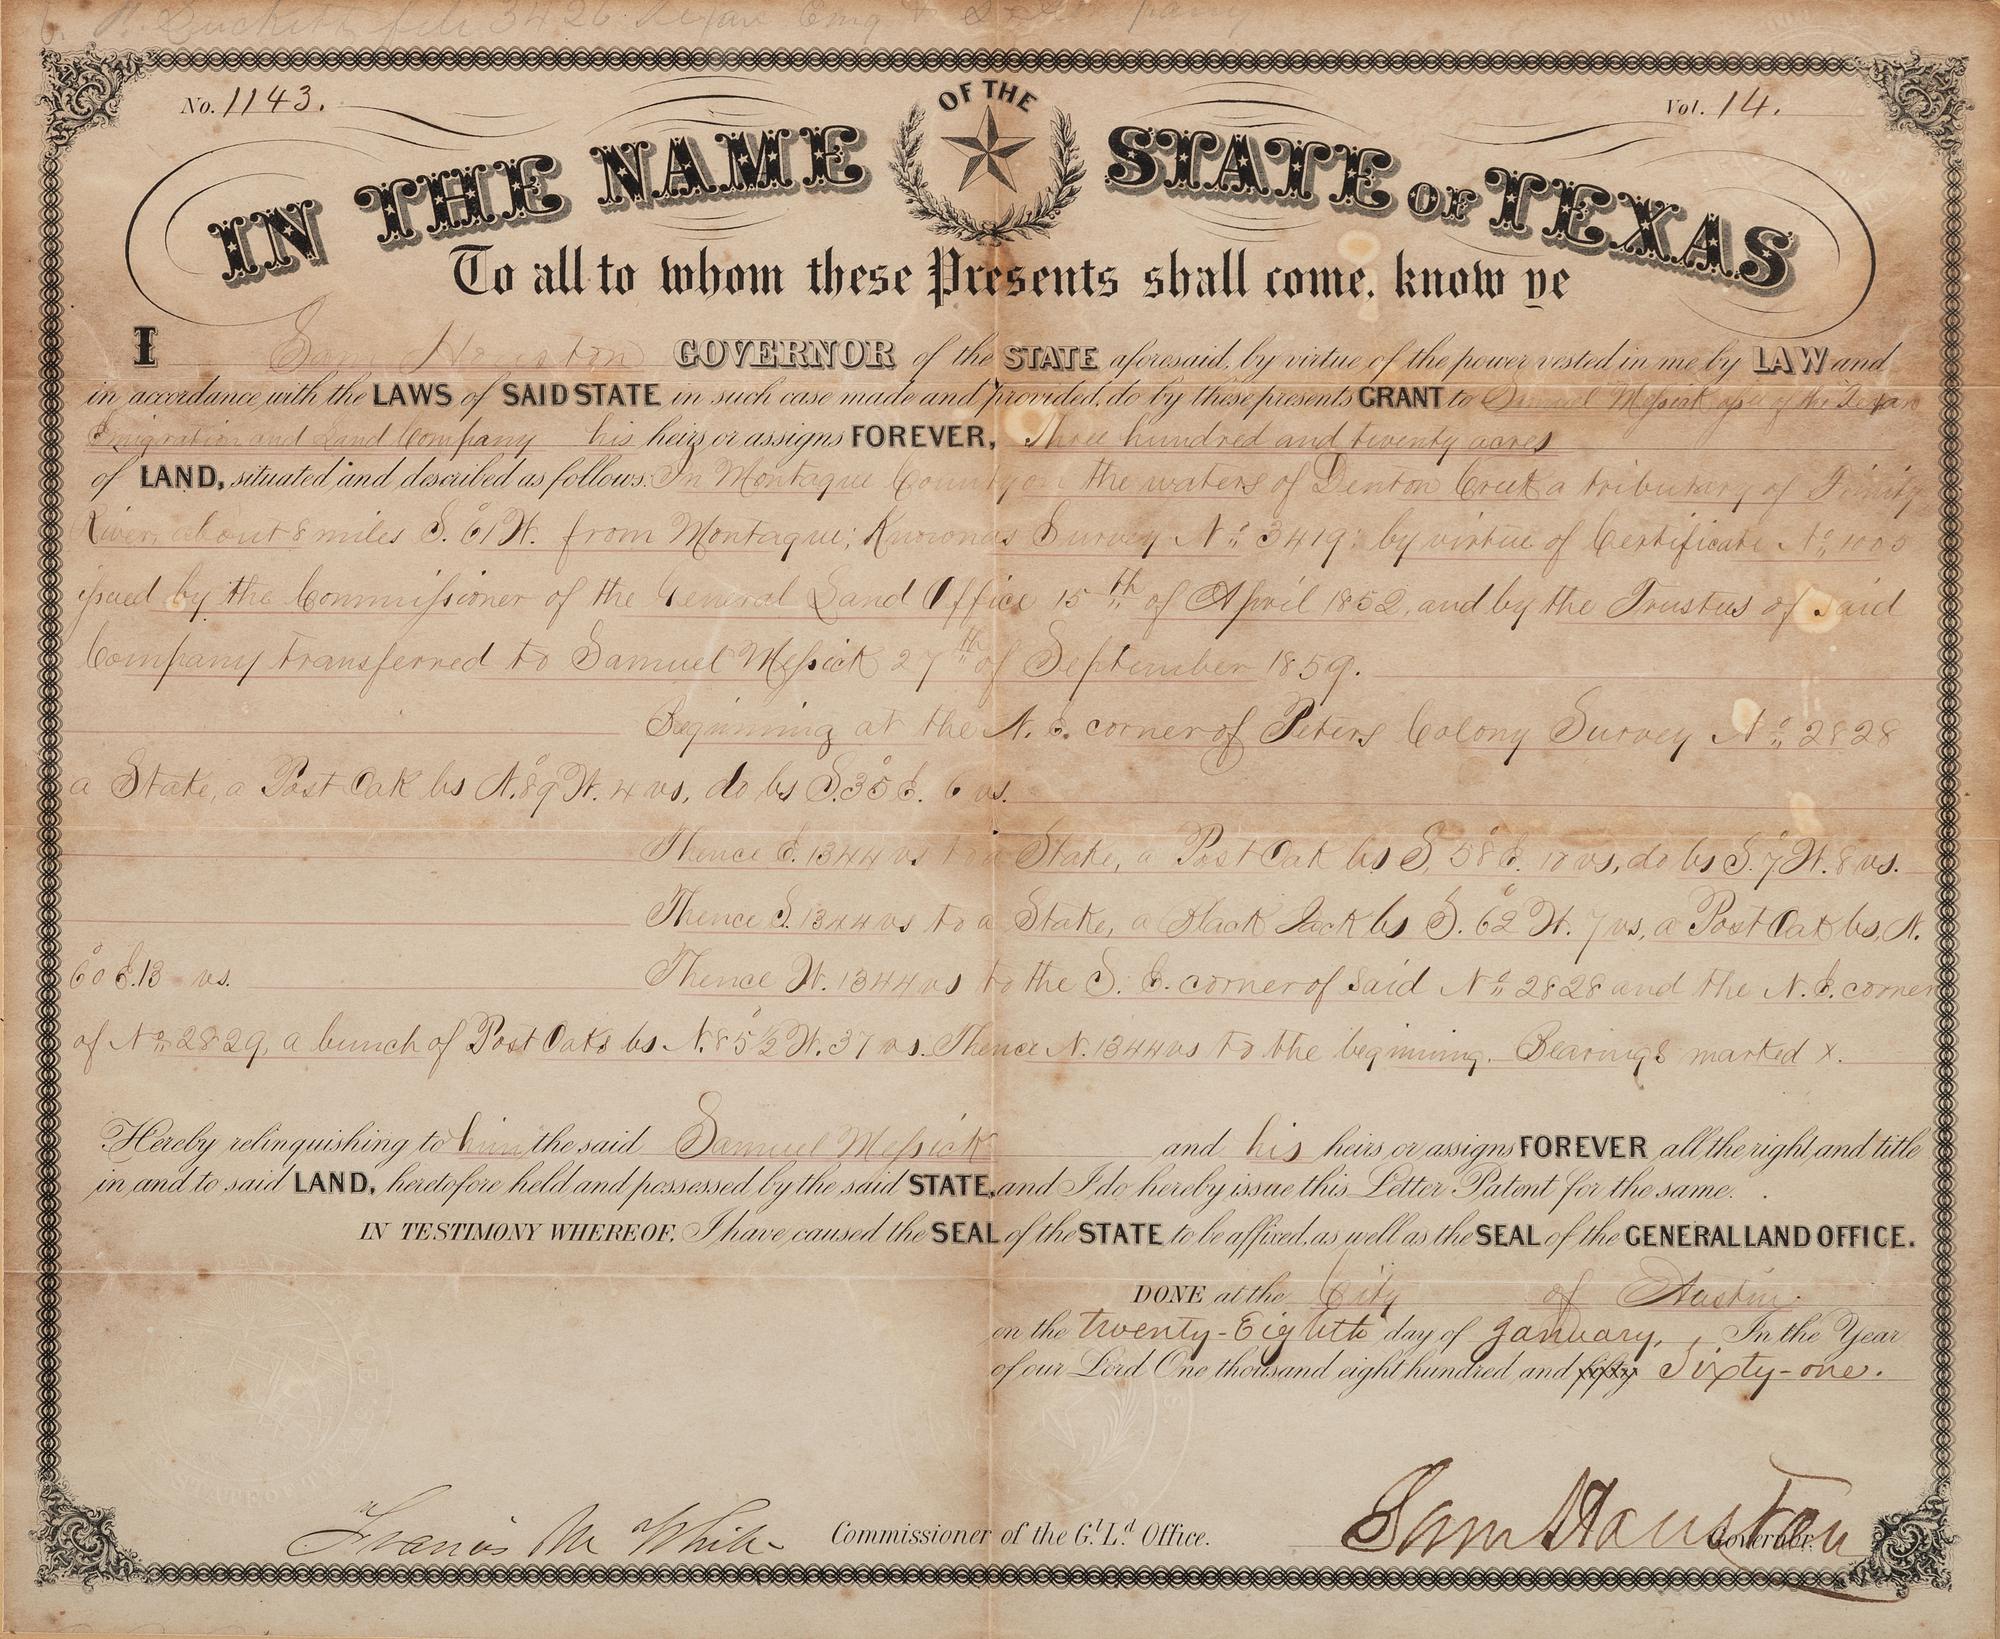 No. 1143.
Vol. 14.
OF THE
IN THE NAME STATE OF TEXAS
To all to whom these Presents shall come, know ye
I Sam Houston GOVERNOR of the STATE aforesaid, by virtue of the power vested in me by LAW and
in accordance with the LAWS of SAID STATE in such case made and provided, do by these presents GRANT to Samuel Messick assee of the Texan
Emigration and Land Company his heirs or assigns FOREVER, Three hundred and twenty acres
of LAND, situated and described as follows: In Montague County on the waters of Denton Creek a tributary of Trinity
River, about 8 miles S. 61° W. from Montague; Known as Survey No. 3419: by virtue of Certificate No. 1005
issued by the Commissioner of the General Land Office 15th of April 1852, and by the Trustees of said
Company transferred to Samuel Messick 27th of September 1859.
Beginning at the N. E. corner of Peters Colony Survey No. 2828
a Stake, a Post Oak bs N. 89° W. 4 vs, do bs S. 35° E. 6 vs.
Thence E. 1344 vs to a Stake, a Post Oak bs S. 58° E. 10 vs, do bs S. 7° W. 8 vs.
Thence S. 1344 vs to a Stake, a Black Jack bs S. 62° W. 7 vs, a Post Oak bs, N.
60° E. 13 vs.
Thence W. 1344 vs to the S. E. corner of said No. 2828 and the N. E. corner
of No. 2829, a bunch of Post Oaks bs N. 85½° W. 37 vs. Thence N. 1344 vs to the beginning. Bearings marked X.
Hereby relinquishing to him the said Samuel Messick and his heirs or assigns FOREVER all the right and title
in and to said LAND, heretofore held and possessed by the said STATE, and I do hereby issue this Letter Patent for the same.
IN TESTIMONY WHEREOF, I have caused the SEAL of the STATE to be affixed, as well as the SEAL of the GENERAL LAND OFFICE.
DONE at the City of Austin.
on the twenty-Eighth day of January, In the Year
of our Lord One thousand eight hundred and fifty Sixty-one.
Francis M White Commissioner of the G'l L'd Office.
Sam Houston Governor.